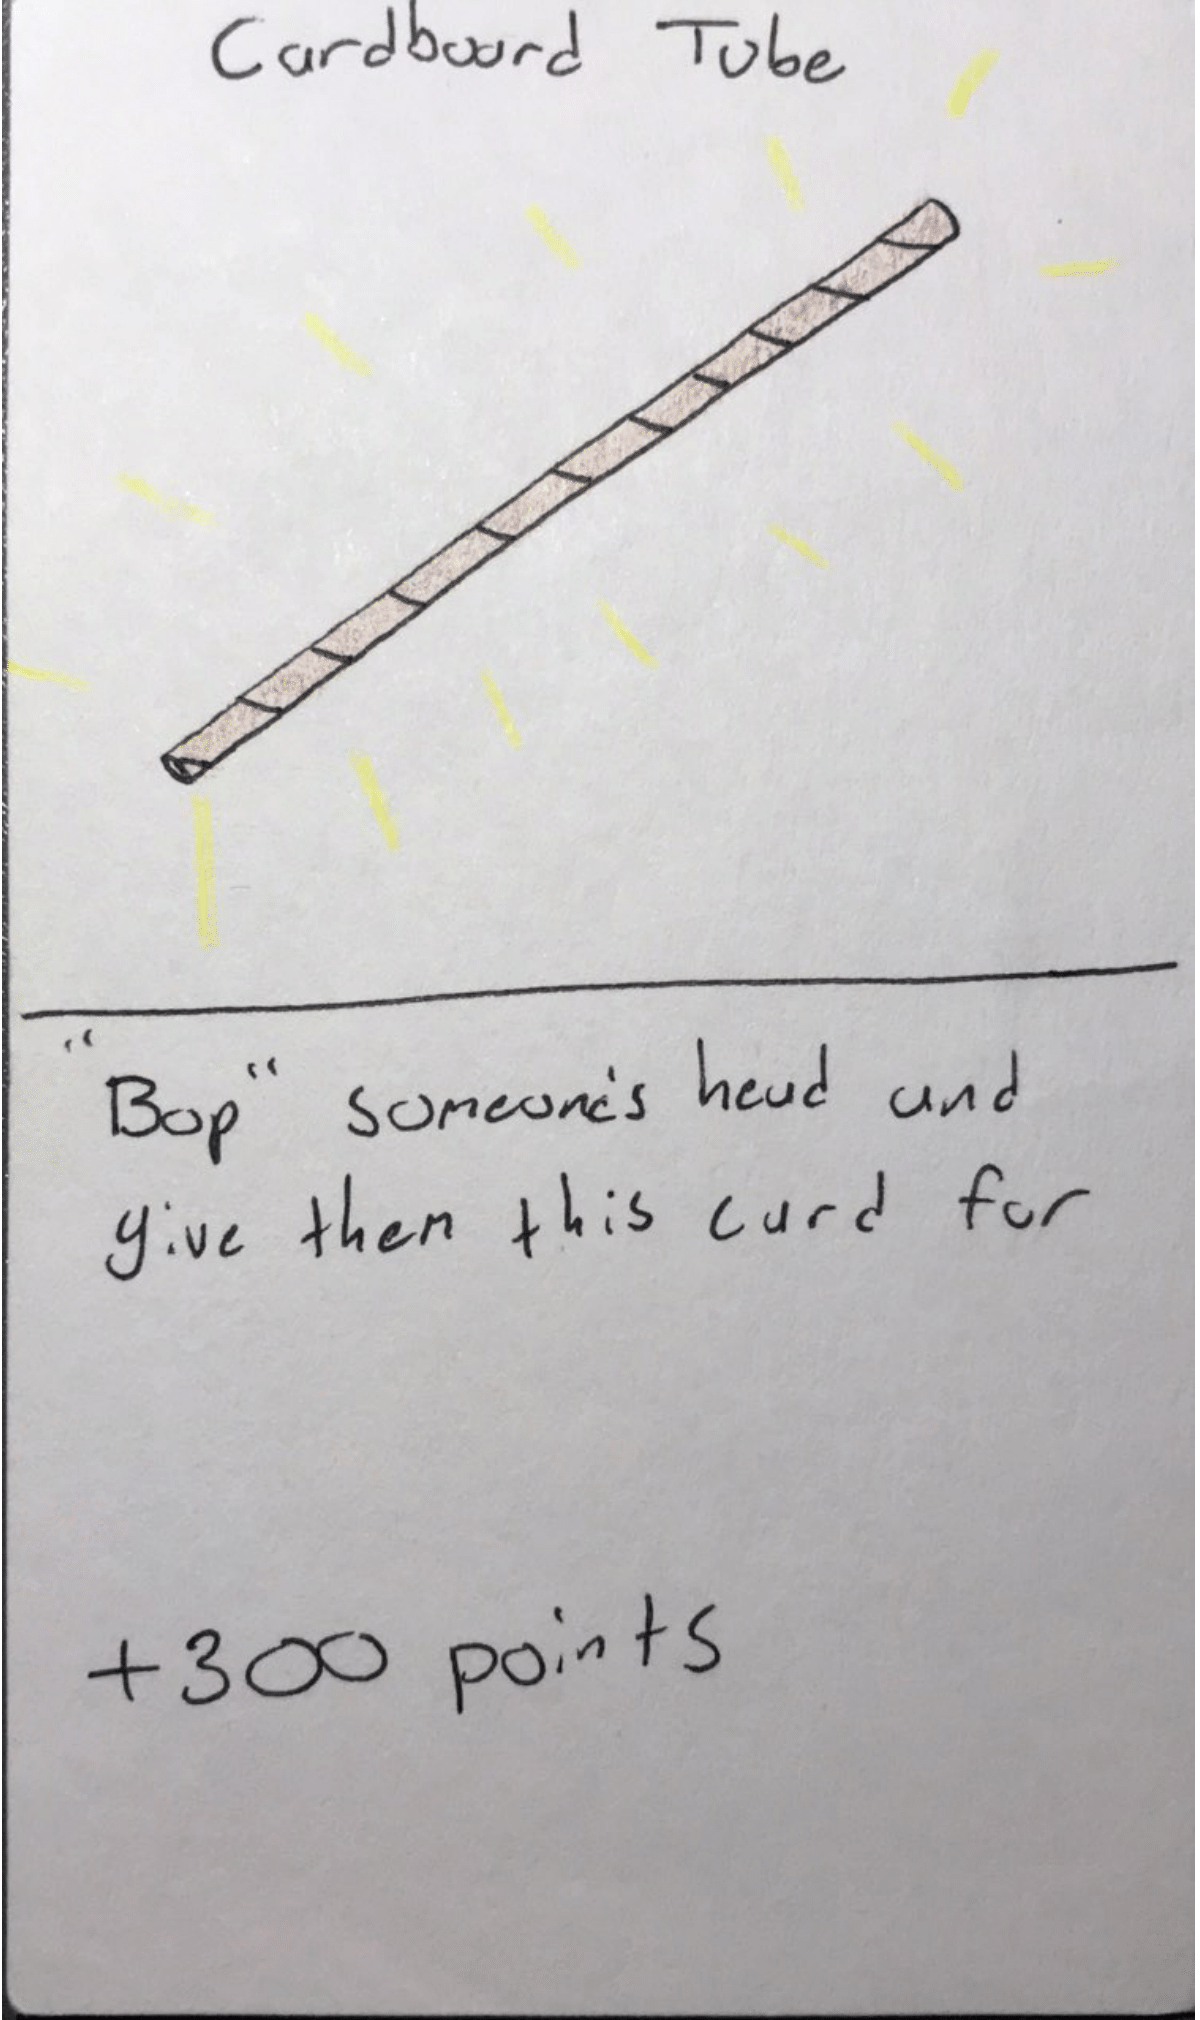 Cardboard Tube
"Bop" someone's head and
give them this card for
+300 points